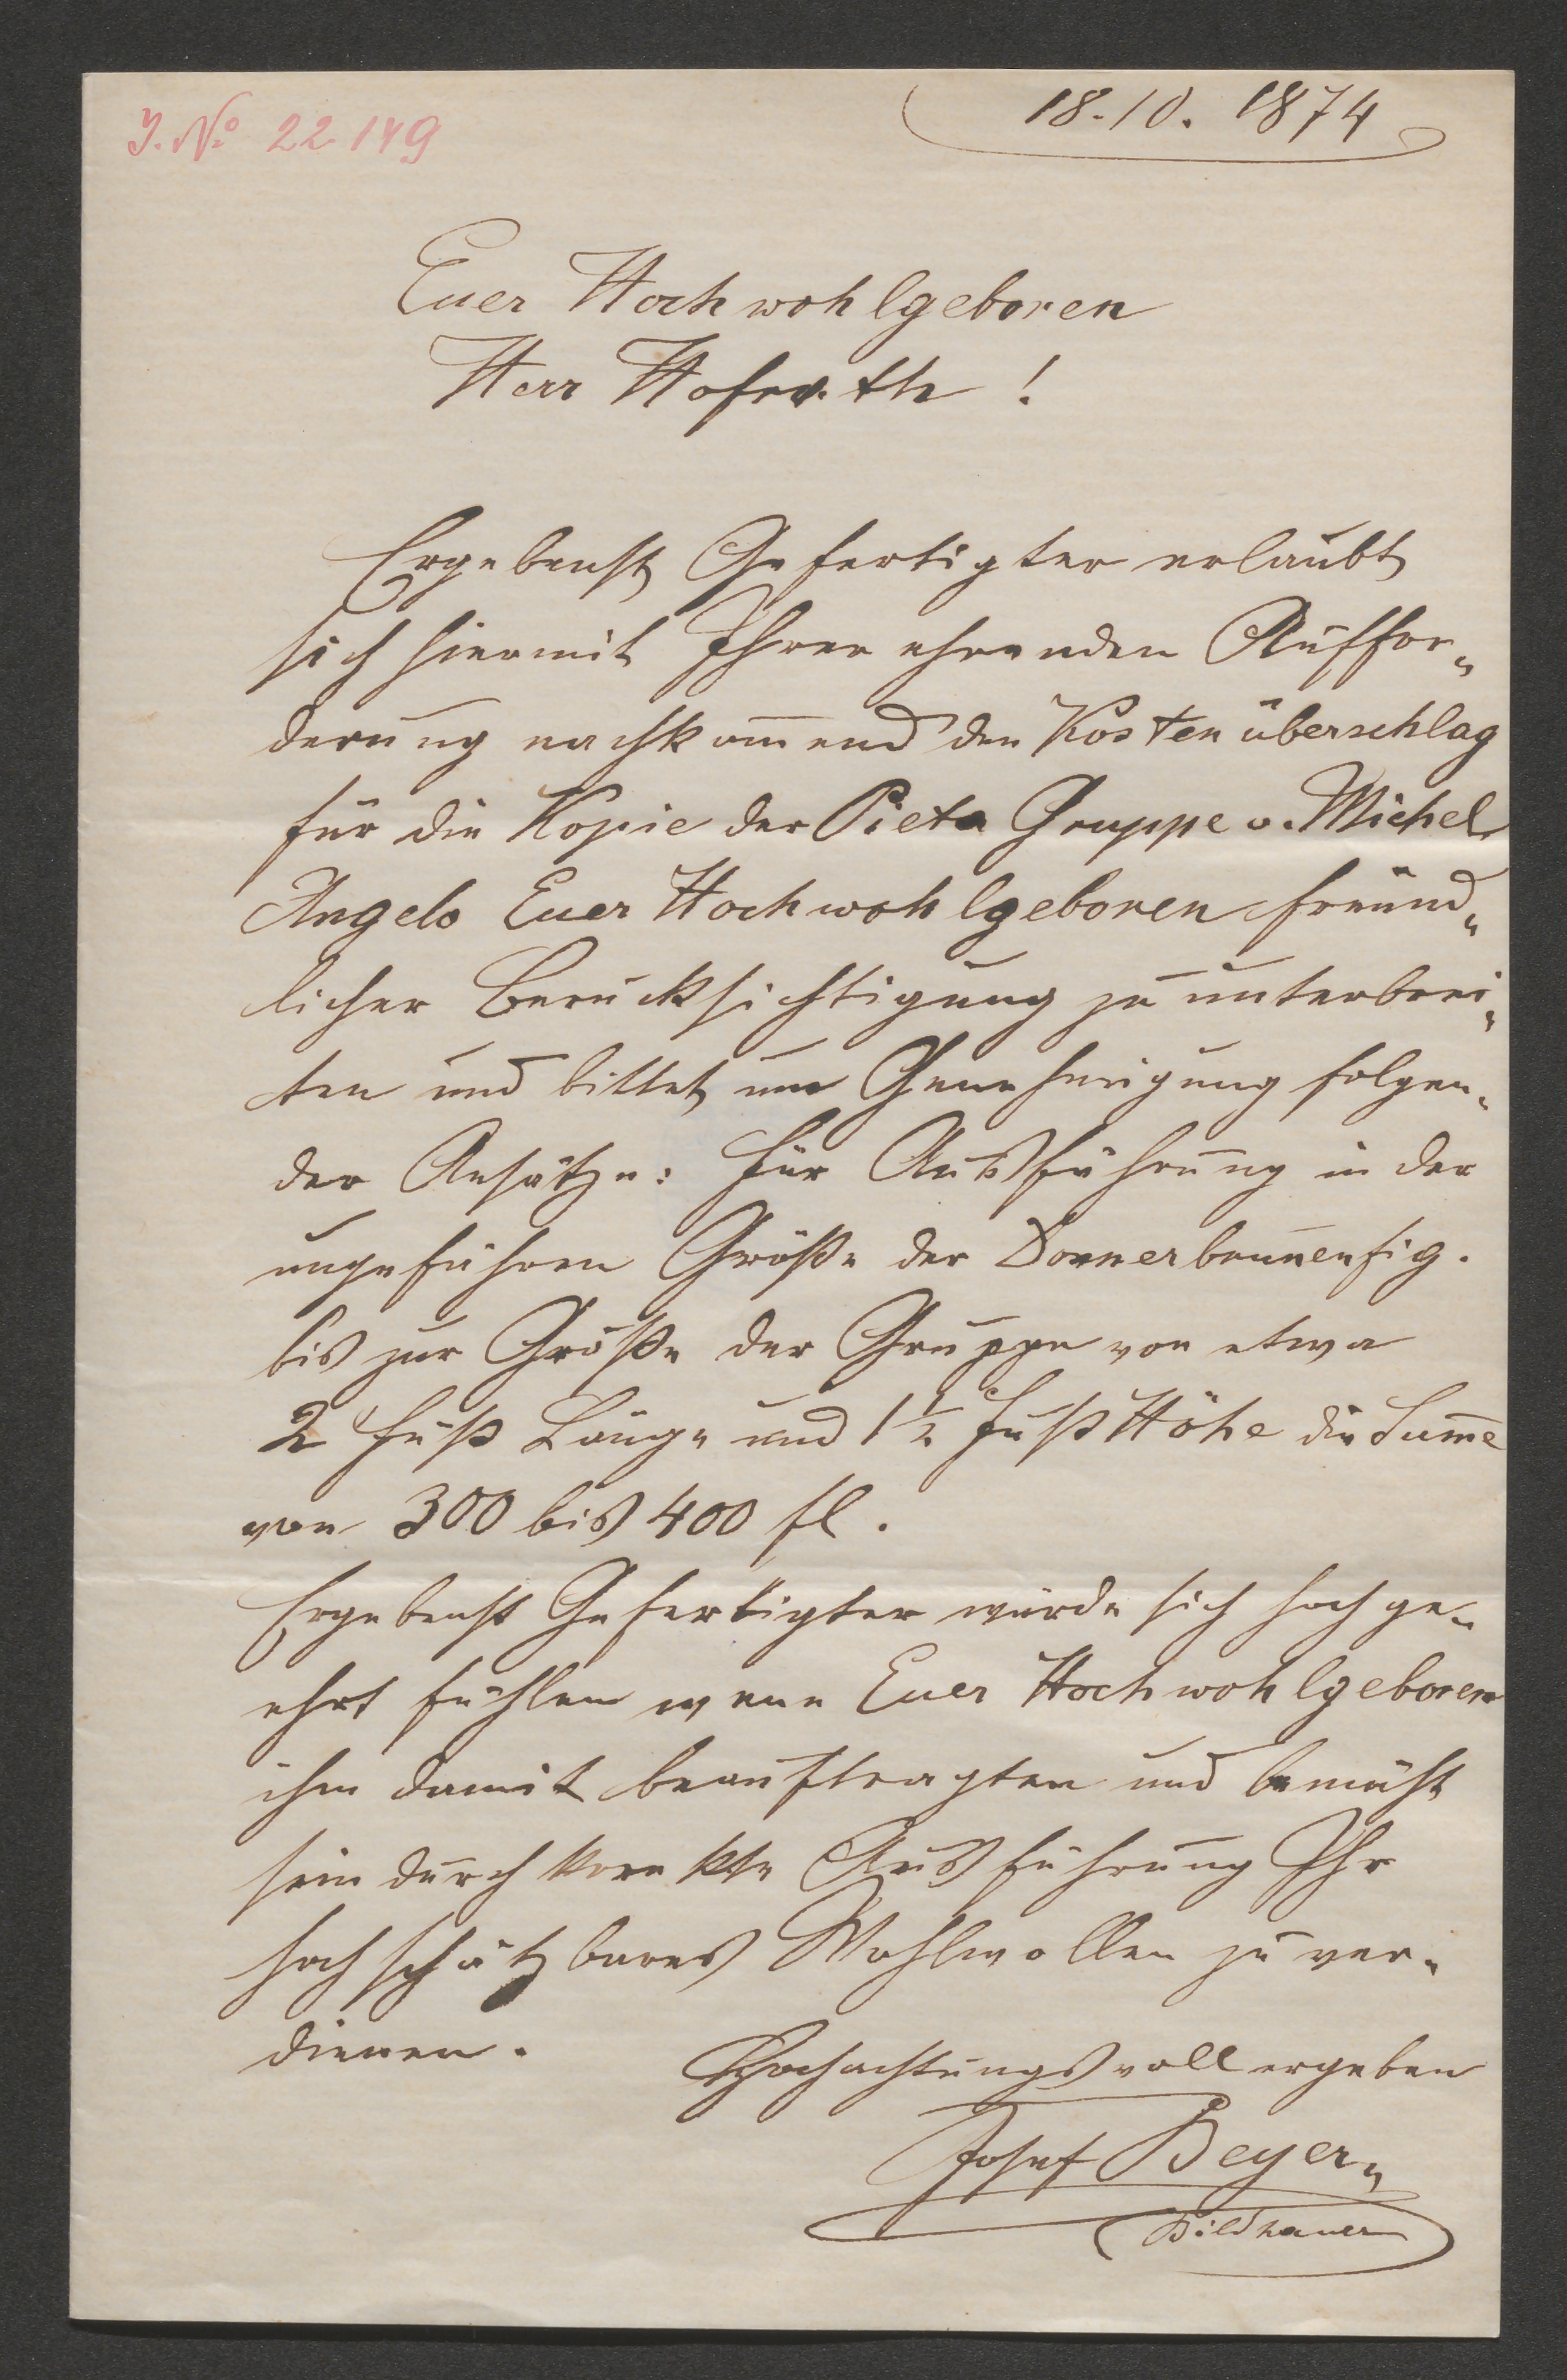 J. No 22.149
18.10.1874
Euer Hochwohlgeboren
Herr Hofrath!
Ergebenst Gefertigter erlaubt
sich hiermit Ihrer ehrenden Auffor„
derung nachkom̅end den Kostenüberschlag
für die Kopie der Pieta Gruppe v. Michel
Angelo Euer Hochwohlgeboren freund„
licher Berücksichtigung zu unterbrei„
ten und bittet um Genehmigung folgen„
der Ansätze: Für Ausführung in der
ungefähren Größe der Donnerbrun̅enfig.
bis zur Größe der Gruppe von etwa
2 Fuß Länge und 1½ Fuß Höhe die Sum̅e
von 300 bis 400 fl.
Ergebenst Gefertigter würde sich hochge„
ehrt fühlen wenn Euer Hochwohlgeboren
ihn damit beauftragten und bemüht
sein durch korekte Ausführung Ihr
hochschätzbares Wohlwollen zu ver„
dienen.
Hochachtungsvoll ergeben
Josef Beyer„
Bildhauer